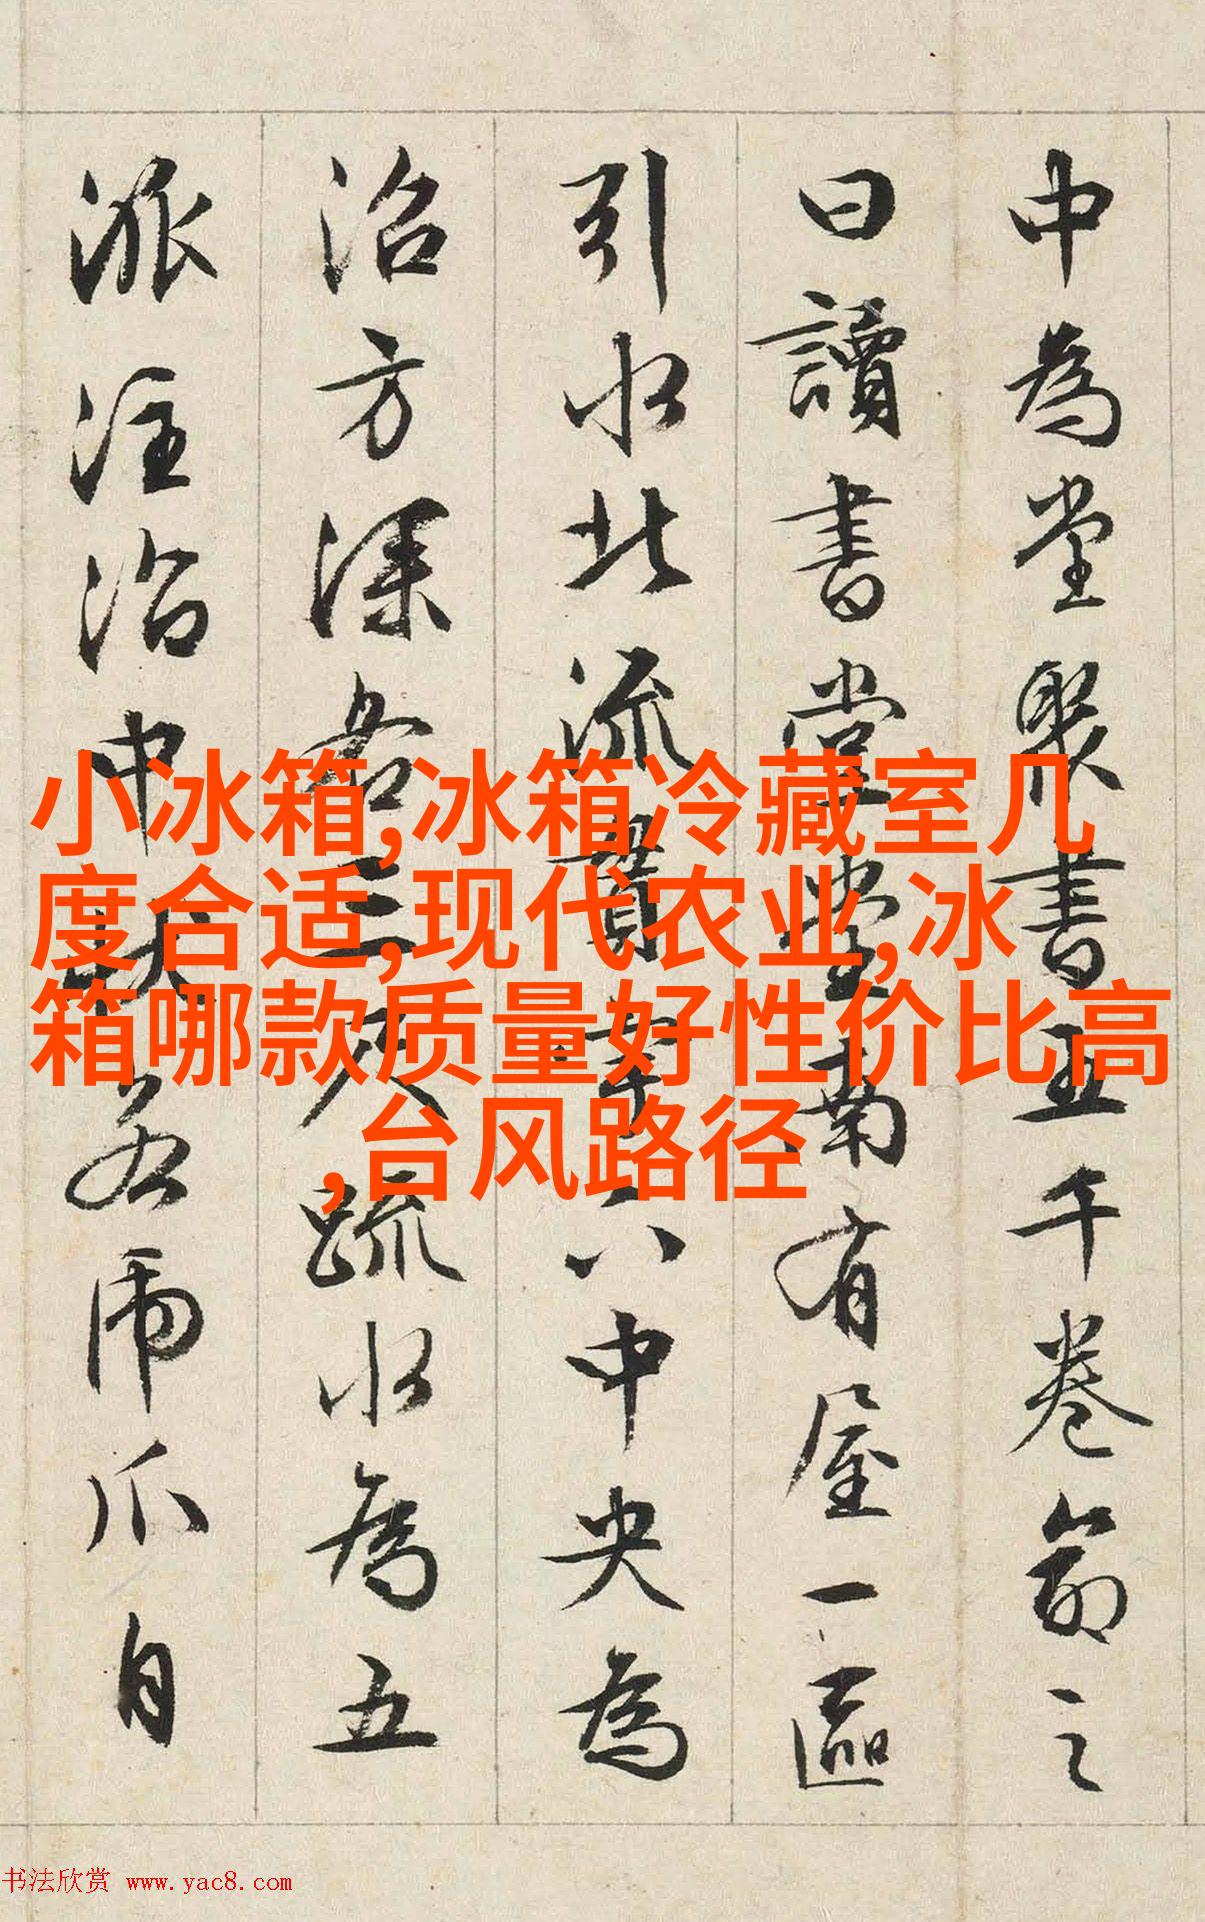 中為堂聚書五千卷命之
曰讀書堂堂南有屋一區
引水北流貫宇下中央為
沼方深各三尺疏水為五
派注沼中狀若虎爪自
小冰箱,冰箱冷藏室几
度合适,现代农业,冰
箱哪款质量好性价比高
,台风路径
书法欣赏 www.yac8.com